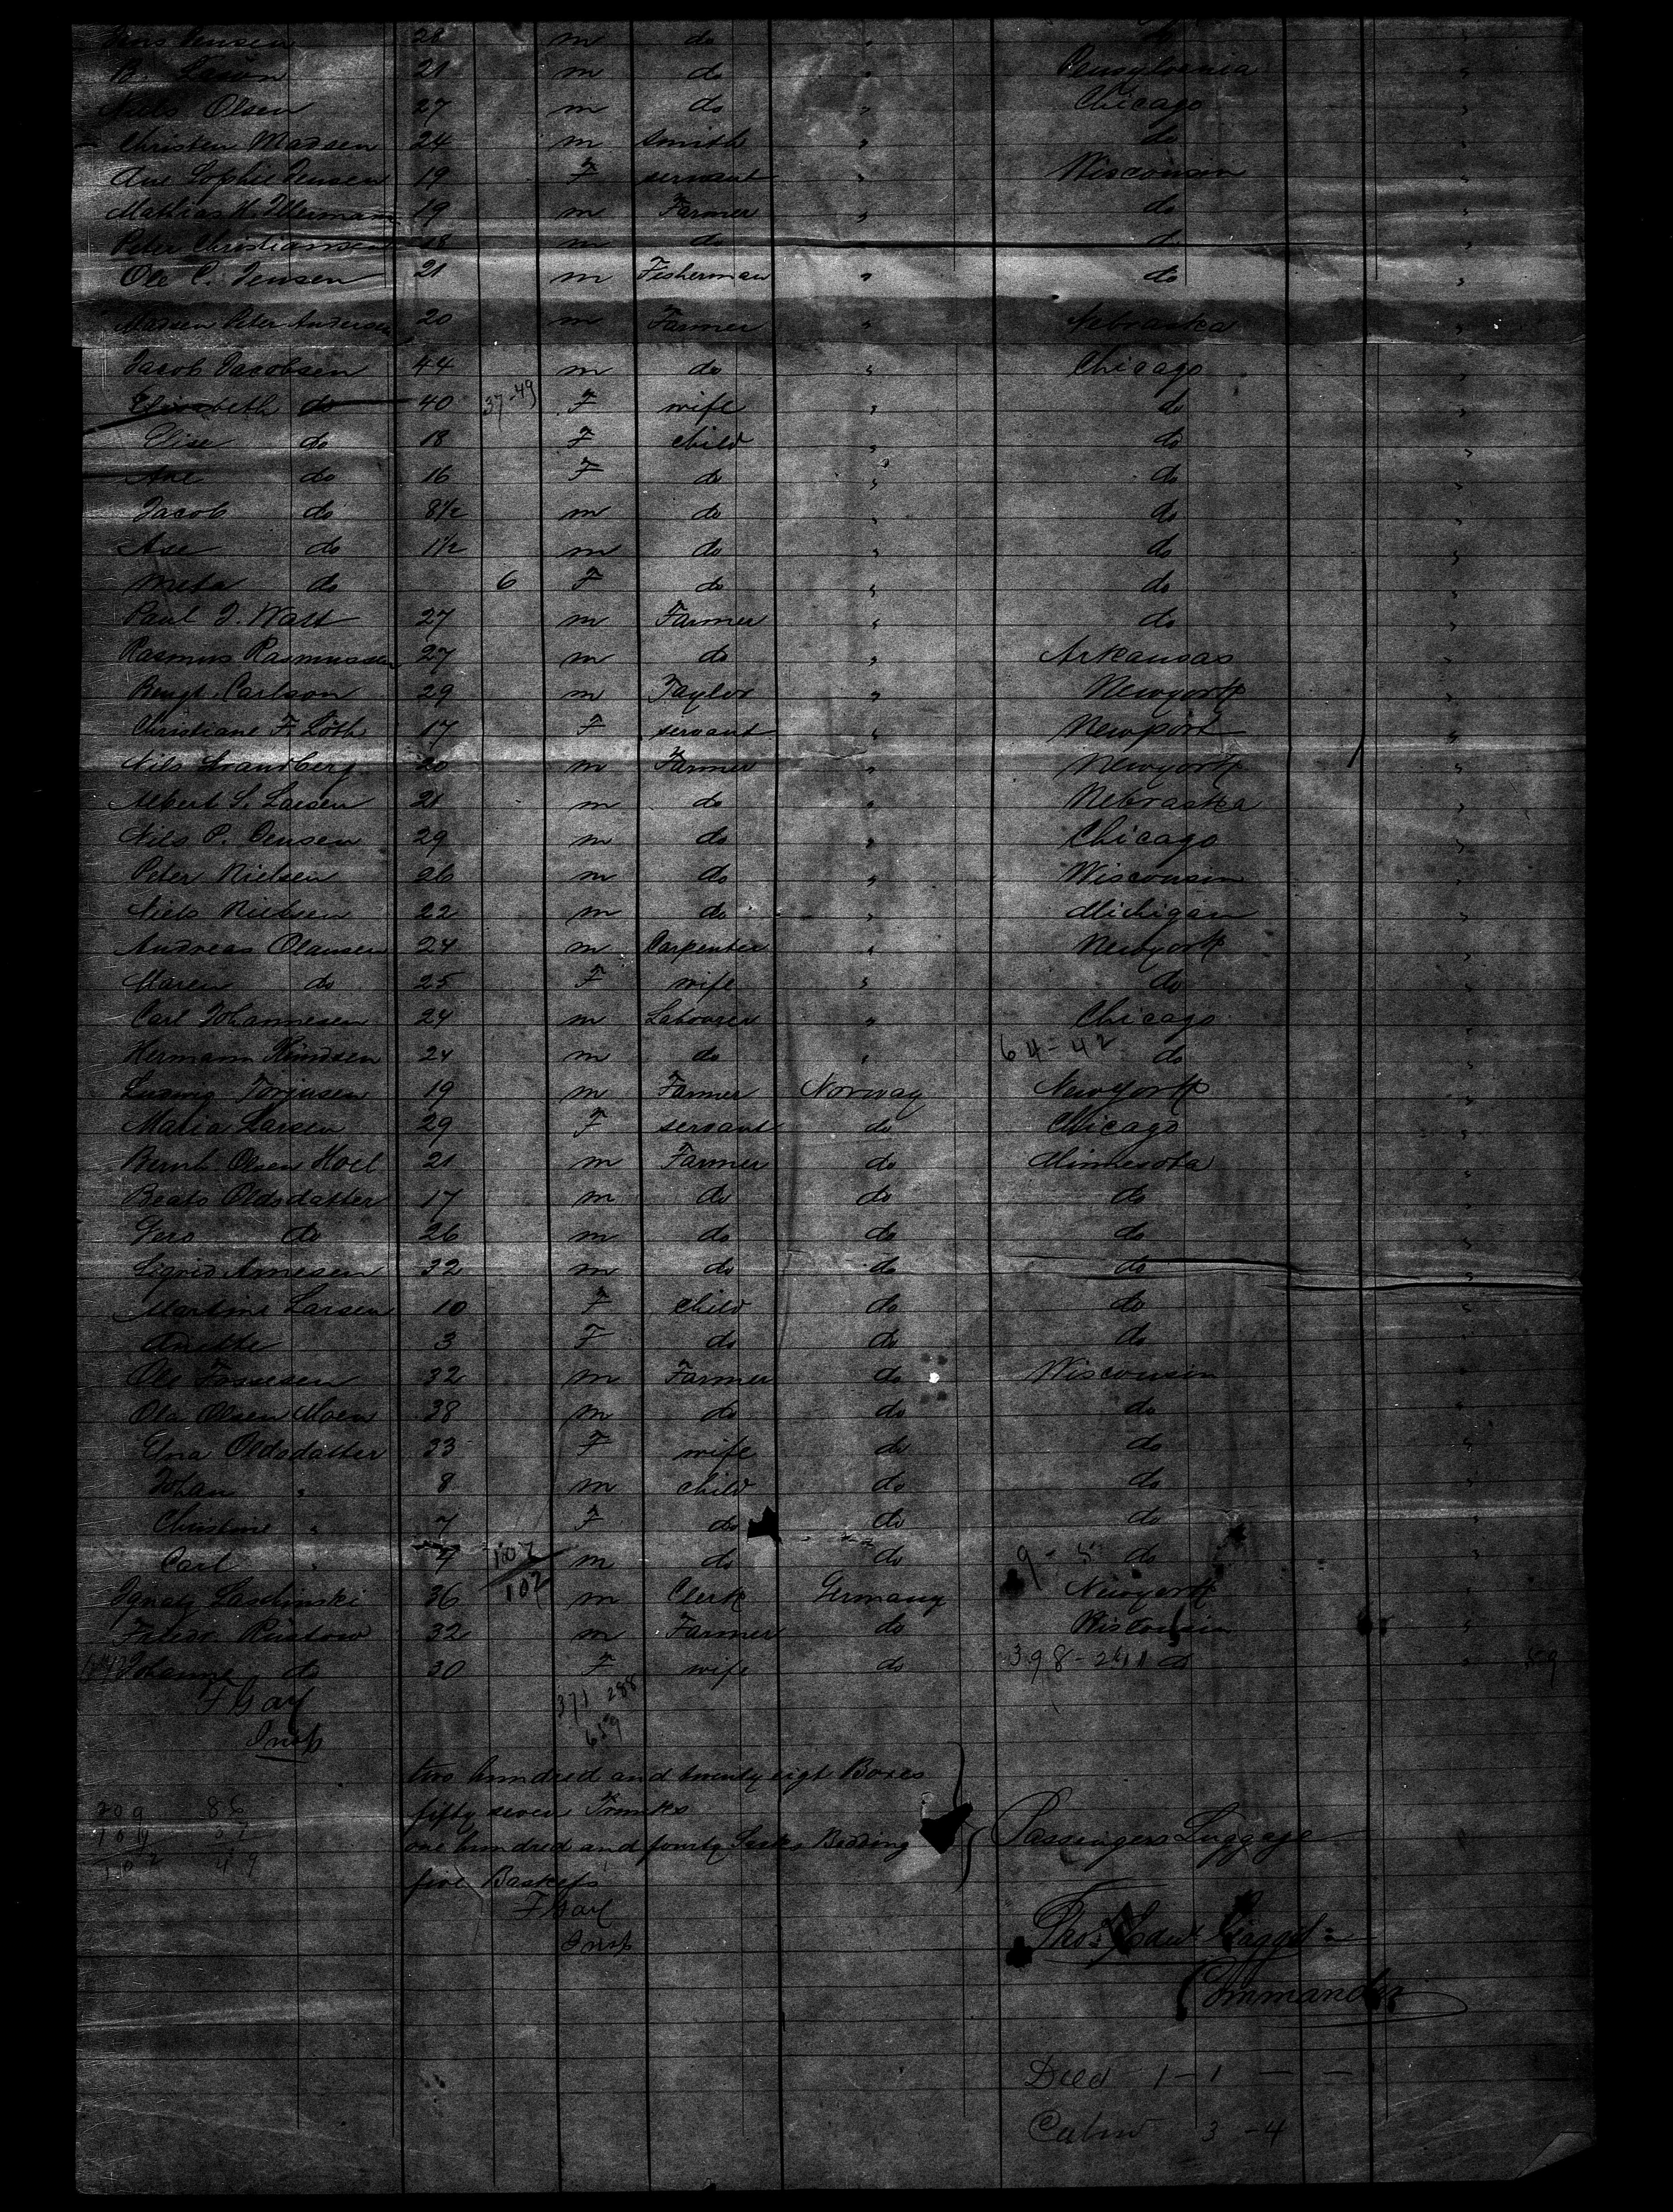 Jens Jensen 28 m do "
21 m do " Pensylvania "
Niels Olsen 27 m do " Chicago "
Christen Madsen 24 m Smith " do "
Ane Sophie Jensen 19 F servant " Wisconsin "
Mathias H. 19 m Farmer " do "
Peter Christiansen 18 m do do "
Ole C. Jensen 21 m Fisherman " do "
Madsen Peter Andersen 20 m Farmer " Nebraska "
Jacob Jacobsen 44 m do " Chicago "
Elisabeth do 40 37-49 F wife " do "
Elise do 18 F child " do "
Ane do 16 F do " do "
Jacob do 8½ m do " do "
Ase do 1½ m do " do "
Meta do 6 F do " do "
Paul J. Watt 27 m Farmer " do "
Rasmus Rasmussen 27 m do " Arkansas "
Bengt Carlson 29 m Taylor " Newyork "
Christiane F. Löth 17 F servant " Newport "
Nils Strandberg 20 m Farmer " Newyork "
Albert S. Larsen 21 m do " Nebraska "
Nils P. Jensen 29 m do " Chicago "
Peter Nielsen 26 m do " Wisconsin "
Niels Nielsen 22 m do " Michigan "
Andreas Olausen 24 m Carpenter " Newyork "
Maren do 25 F wife " do "
Carl Johannesen 24 m Labourer " Chicago "
Hermann Kündsen 24 m do " 64-42 do "
Ludwig Torjusen 19 m Farmer Norway Newyork "
Maria Larsen 29 F servant do Chicago "
Bernh. Olsen Hoel 21 m Farmer do Minnesota "
Beato Oldsdatter 17 m do do do "
Gero do 26 m do do do "
Sigvid Arnesen 32 m do do do "
Martine Larsen 10 F child do do "
Anette 3 F do do do "
Ole 32 m Farmer do Wisconsin "
Ola Olsen Moen 38 m do do do "
Elna Oldsdatter 33 F wife do do "
Johan " 8 m child do do "
Christine " 7 F do do do "
Carl " 4 107 m do do 9-5 do "
Ignatz Laslinski 36 102 m Clerk Germany Newyork "
Friedr. Rüstow 32 m Farmer do Wisconsin "
Johanne do 30 F wife do 398-261 do " 59
371 288
Insp
659
two hundred and twenty eigt Boxes
fifty seven Trunks
one hundred and fourty Sacks Bedding
Passengers Luggage
five Baskets
Insp
Commander
Died 1-1 — —
3-4